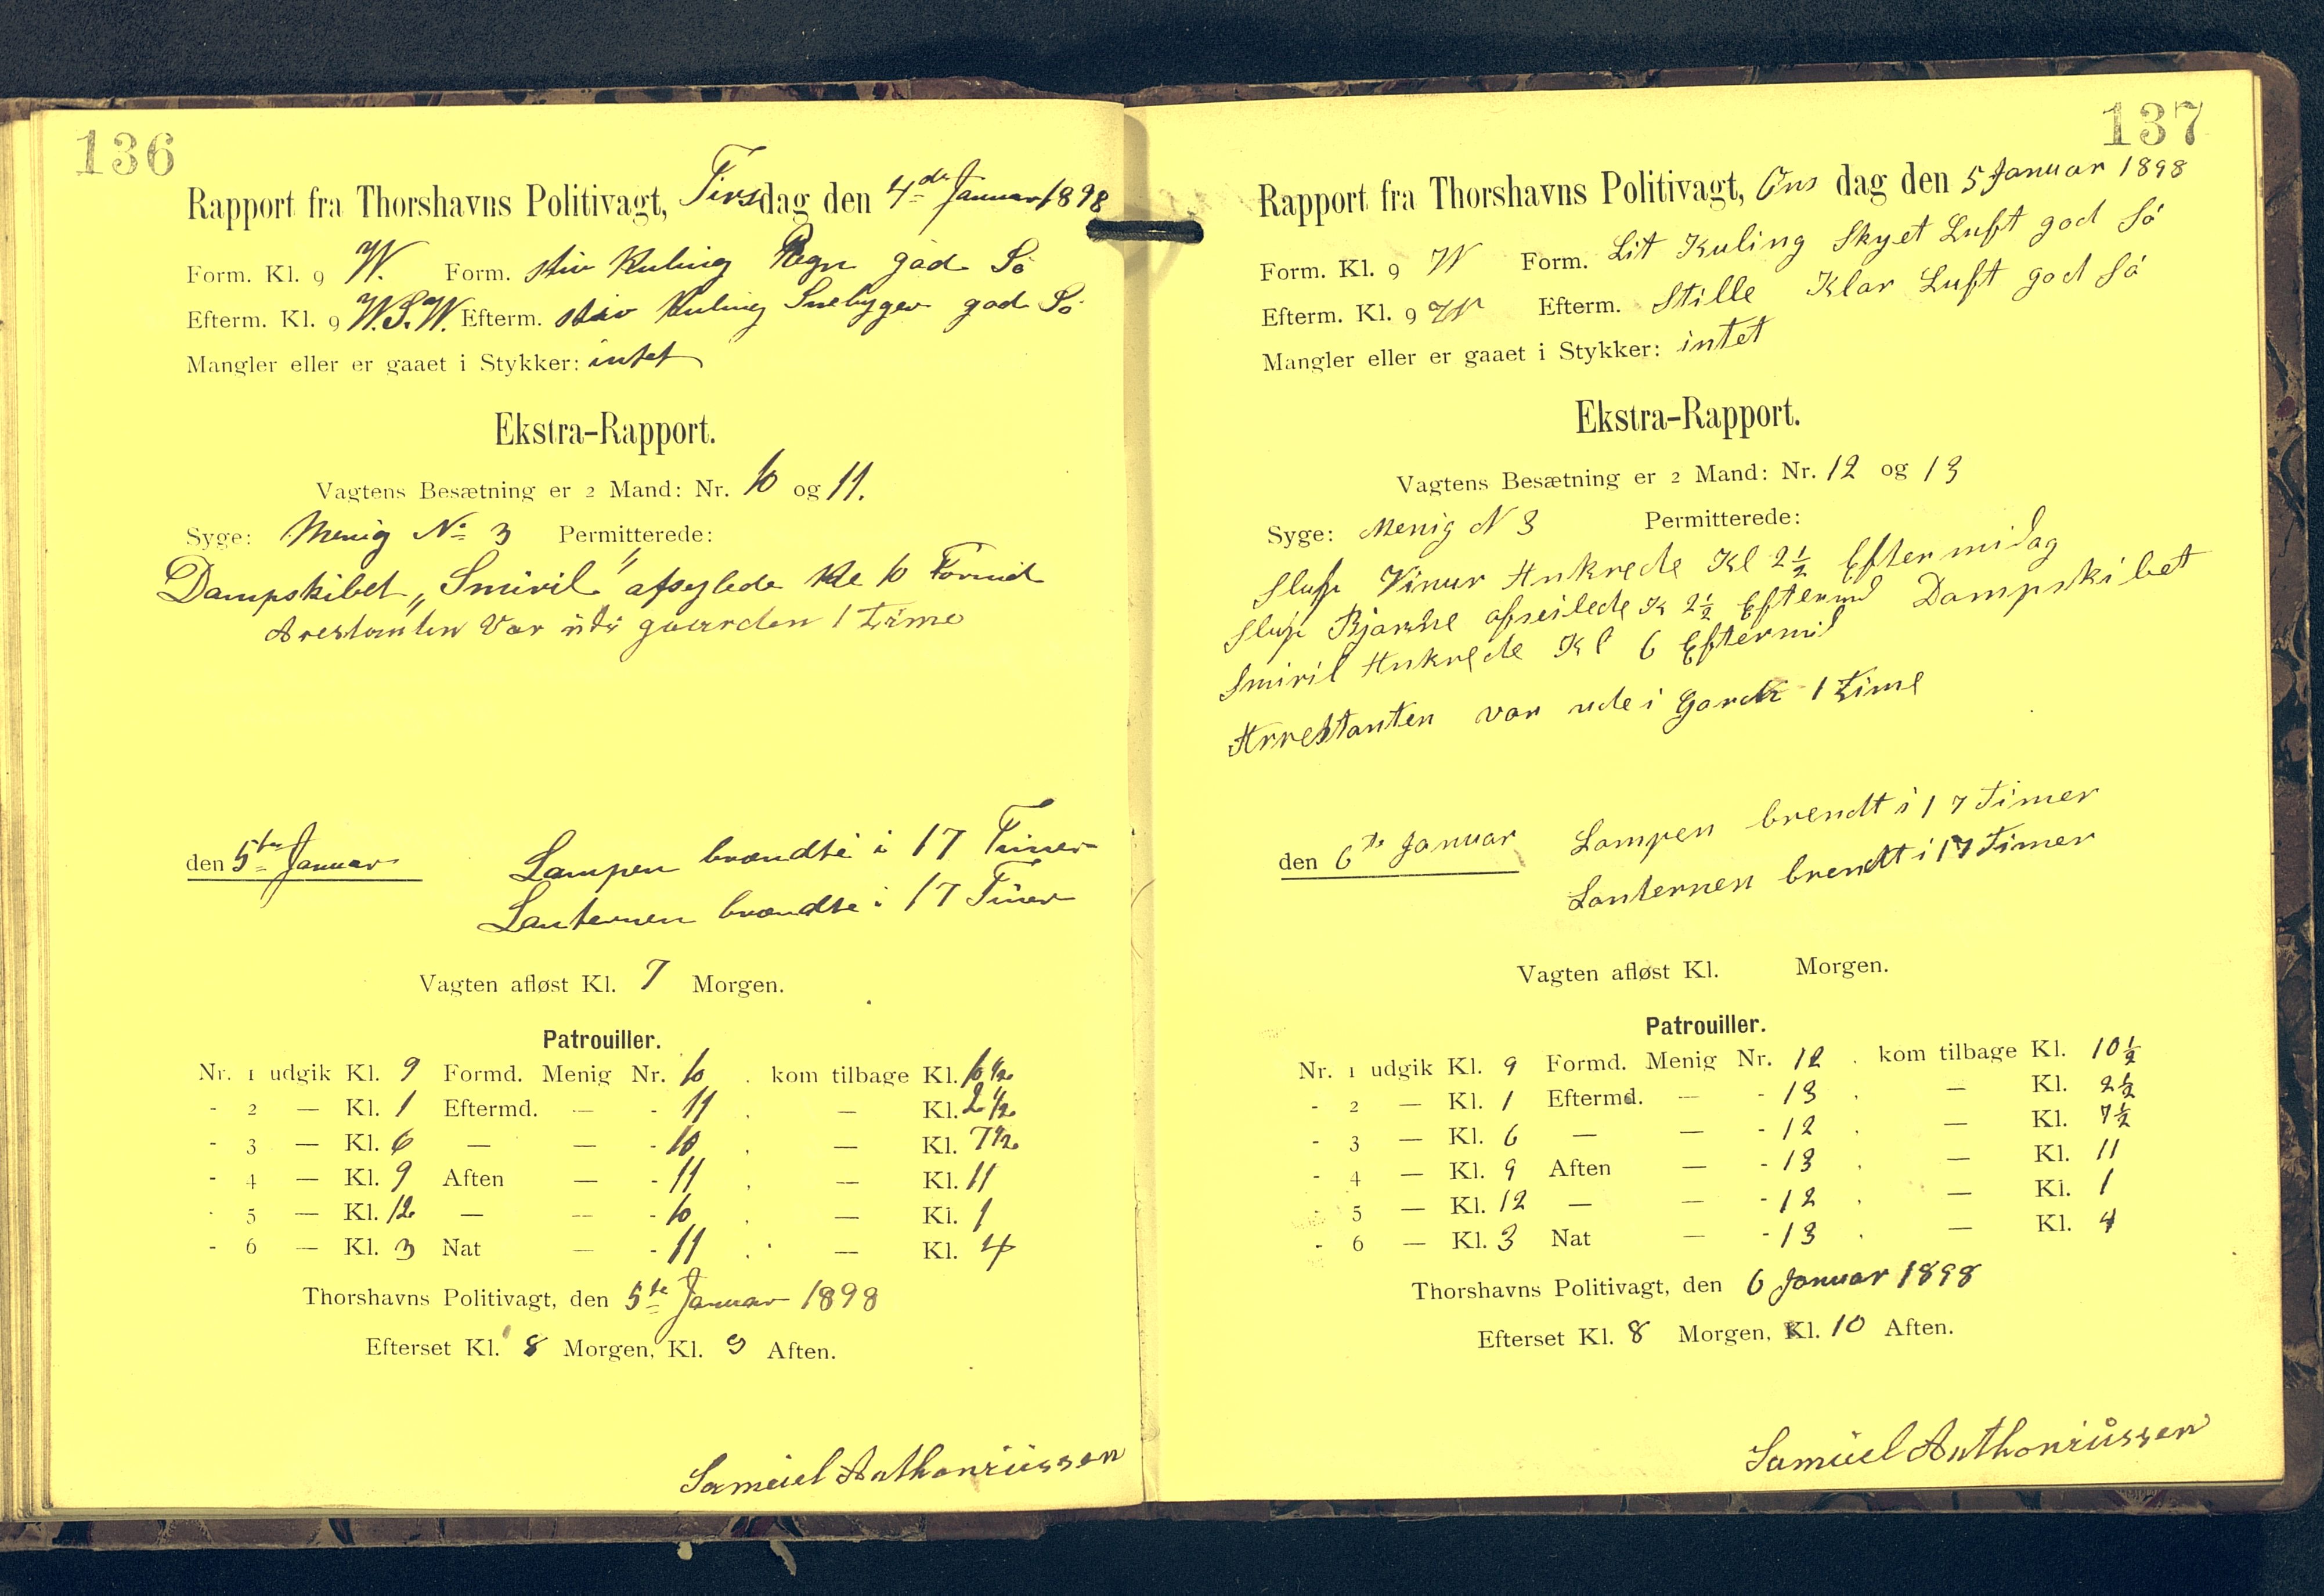 136
Rapport fra Thorshavns Politivagt, Tirsdag den 4de Januar 1898
Form. Kl. 9 W. Form. stiv Kuling Regn god Sö
Efterm. Kl. 9 W.S.W. Efterm. stiv Kuling Snebyger god Sö
Mangler eller er gaaet i Stykker: intet
Ekstra-Rapport.
Vagtens Besætning er 2 Mand: Nr. 10 og 11.
Syge: Menig No 3 Permitterede:
Dampskibet „Smiril" afseglede Kl 10 Formid
Arestanten Var ude i gaarden 1 Time
den 5te Januar Lampen brændte i 17 Timer
Lanternen brændte i 17 Timer
Vagten afløst Kl. 7 Morgen.
Patrouiller.
Nr. 1 udgik Kl. 9 Formd. Menig Nr. 10 . kom tilbage Kl. 10 1/2
- 2 — Kl. 1 Eftermd. — - 11 . — Kl. 2 1/2
- 3 — Kl. 6 — — - 10 . — Kl. 7 1/2
- 4 — Kl. 9 Aften — - 11 . — Kl. 11
- 5 — Kl. 12 — — - 10 . — Kl. 1
- 6 — Kl. 3 Nat — - 11 . — Kl. 4
Thorshavns Politivagt, den 5te Januar 1898
Efterset Kl. 8 Morgen, Kl. 9 Aften.
Samúel Anthoniússen
137
Rapport fra Thorshavns Politivagt, Ons dag den 5 Januar 1898
Form. Kl. 9 W Form. Lit Kuling Skyet Luft god Sö
Efterm. Kl. 9 W Efterm. Stille Klar Luft god Sö
Mangler eller er gaaet i Stykker: intet
Ekstra-Rapport.
Vagtens Besætning er 2 Mand: Nr. 12 og 13
Syge: Menig N 3 Permitterede:
Slup Vinur Ankrede Kl 2 1/2 Eftermidag
Slup Bjarkel afseilede K 2 1/2 Eftermd Dampskibet
Smiril Ankrede Kl 6 Eftermid
Arrestanten var ude i Garde 1 Time
den 6te Januar Lampen brendt i 17 Timer
Lanternen brendt i 17 Timer
Vagten afløst Kl. Morgen.
Patrouiller.
Nr. 1 udgik Kl. 9 Formd. Menig Nr. 12 . kom tilbage Kl. 10 1/2
- 2 — Kl. 1 Eftermd. — - 13 . — Kl. 2 1/2
- 3 — Kl. 6 — — - 12 . — Kl. 7 1/2
- 4 — Kl. 9 Aften — - 13 . — Kl. 11
- 5 — Kl. 12 — — - 12 . — Kl. 1
- 6 — Kl. 3 Nat — - 13 . — Kl. 4
Thorshavns Politivagt, den 6 Januar 1898
Efterset Kl. 8 Morgen, Kl. 10 Aften.
Samúel Anthoniússen